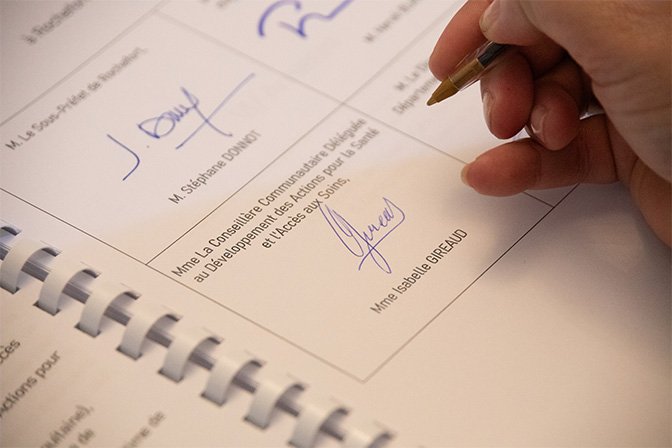 à Rochefort
M. Le Sous-Préfet de Rochefort,
M. Stéphane DONNOT
M. Hervé
M. Le
Département
Mme La Conseillère Communautaire Déléguée
au Développement des Actions pour la Santé
et l'Accès aux Soins,
Gireaud
Mme Isabelle GIREAUD
ccès
Actions pour
uitaine),
de